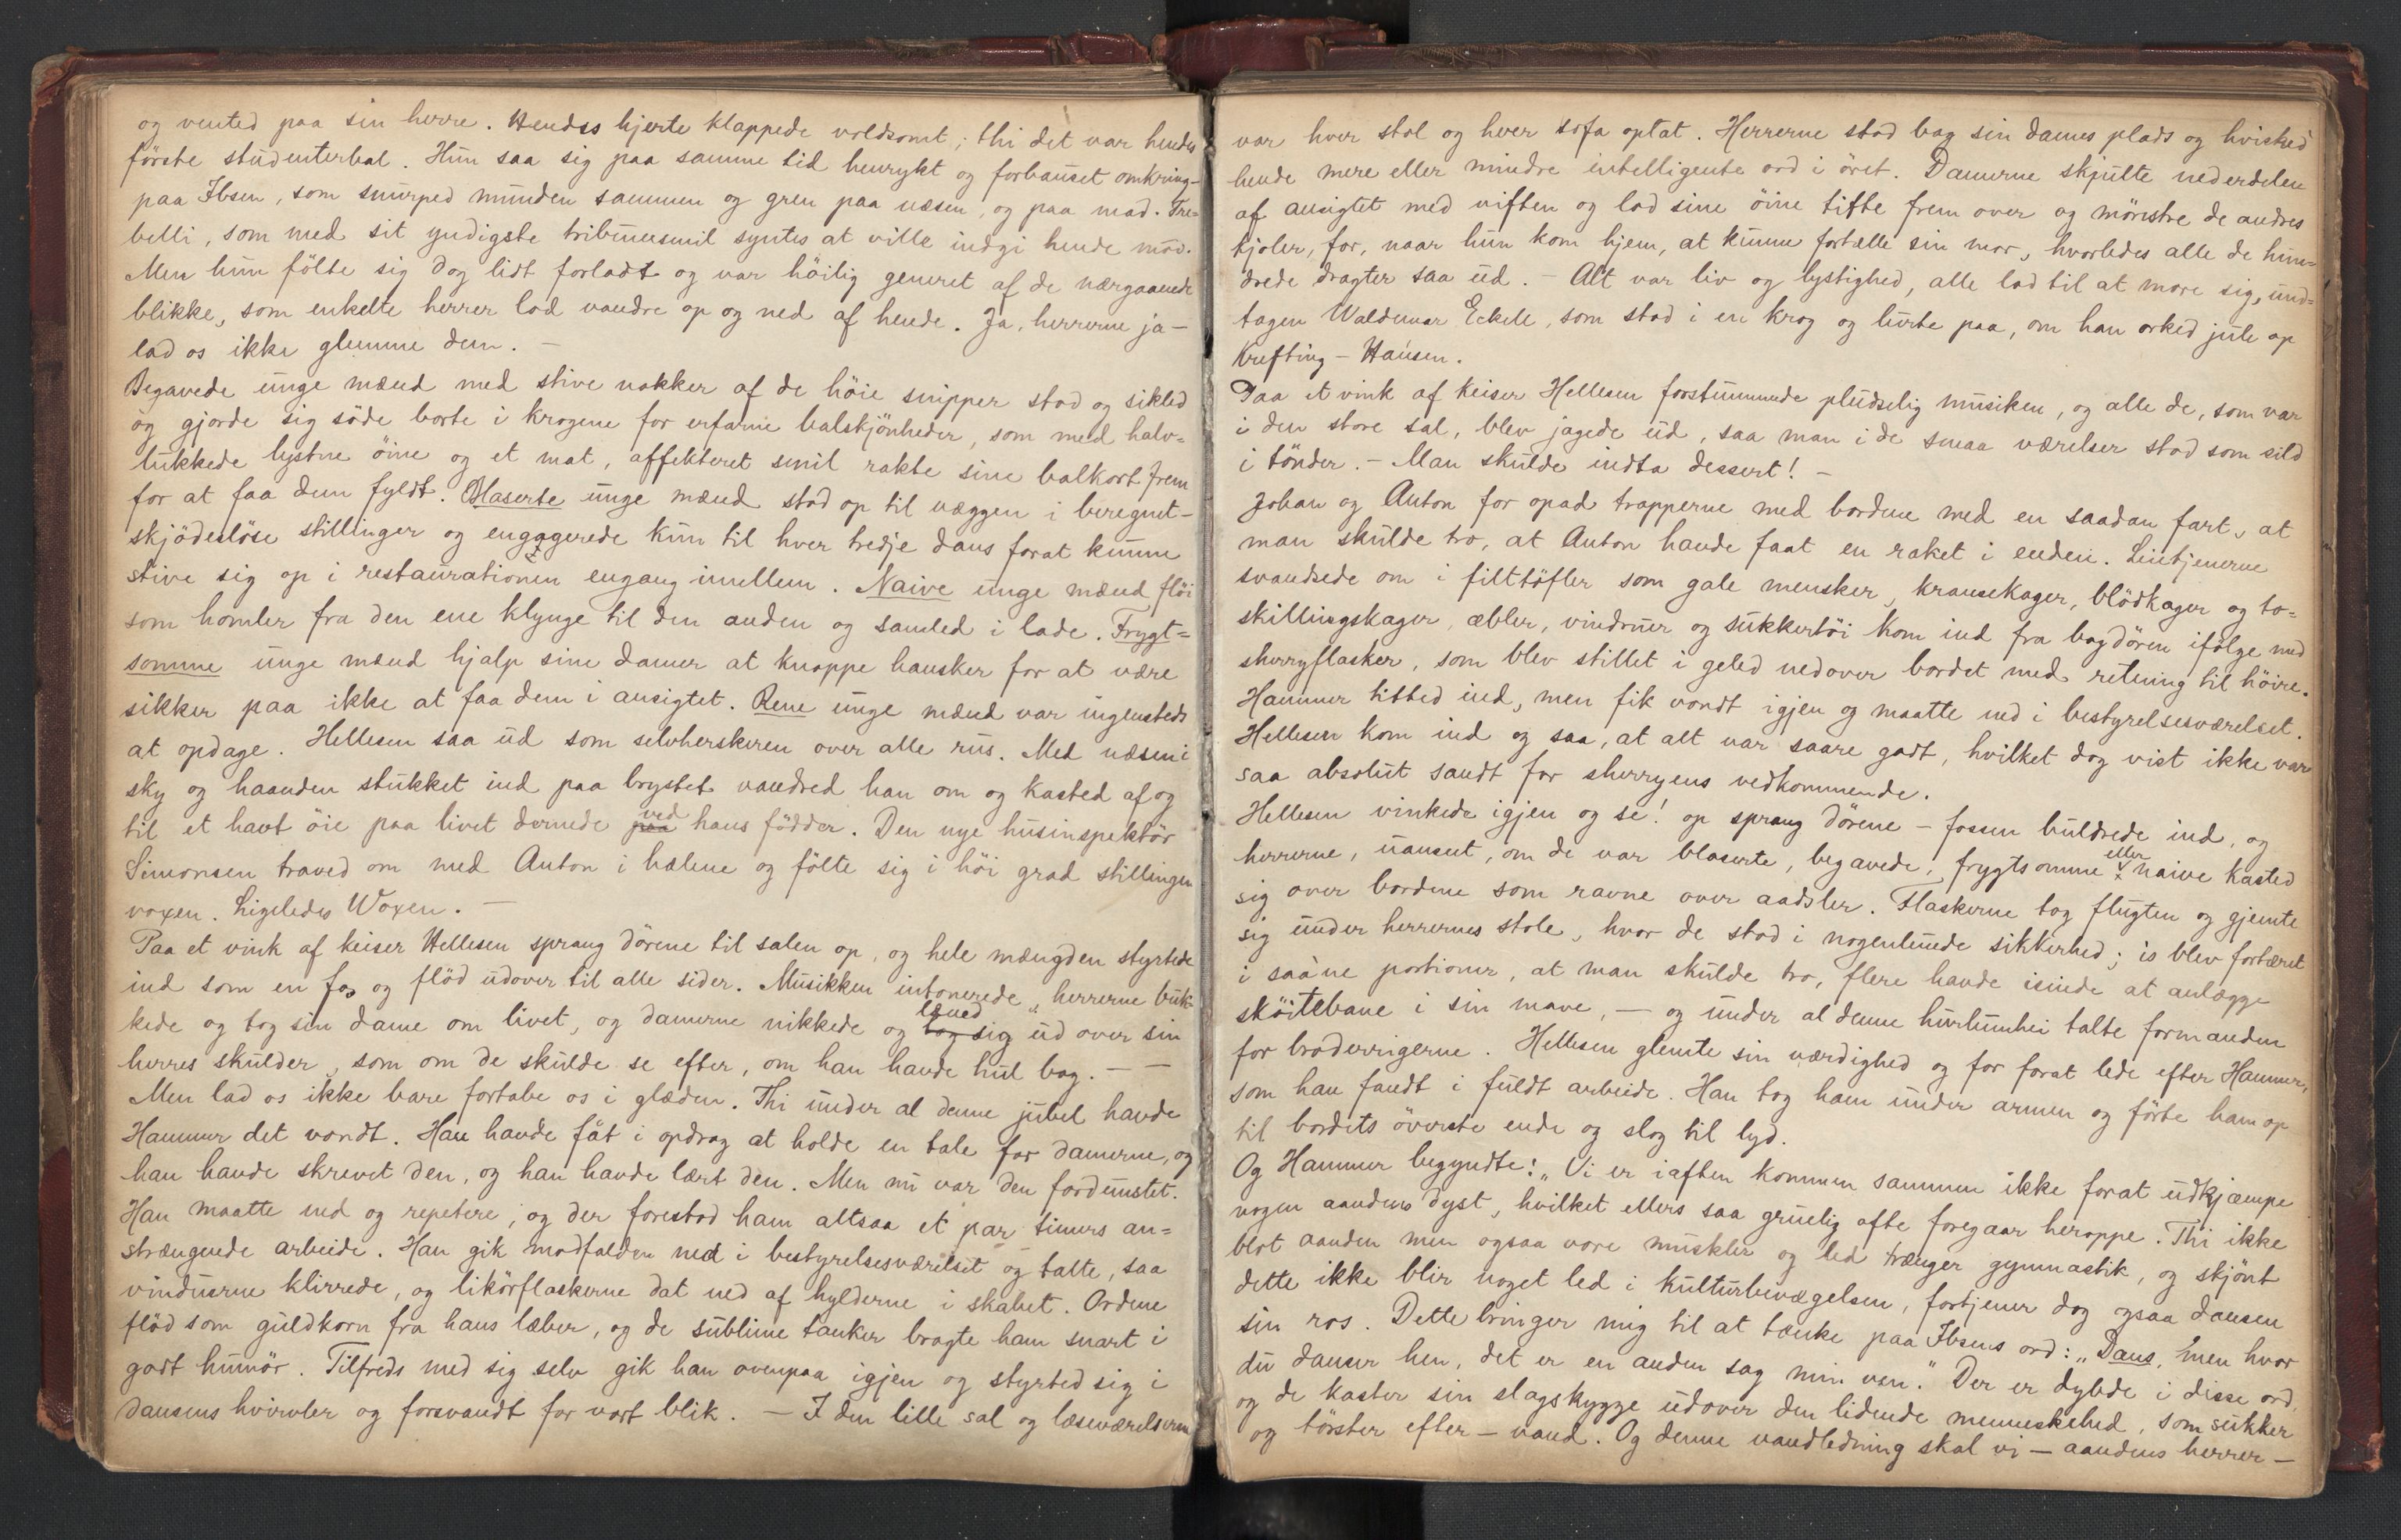 og vented paa sin herre. Hendes hjerte klappede voldsomt; thi det var hendes
første studenterbal. Hun saa sig paa samme tid henrykt og forbauset omkring-
paa Ibsen, som snurped munden sammen og gren paa næsen, og paa mad. Tre-
belli, som med sit yndigste tribunesmil syntes at ville indgi hende mod.
Men hun følte sig dog lidt forladt og var høilig generet af de nærgaaende
blikke, som enkelte herrer lod vandre op og ned af hende. Ja, herrerne ja-
lad os ikke glemme dem. —
Begavede unge mænd med stive nakker af de høie snipper stod og sikled
og gjorde sig søde borte i krogene for erfarne balskjønheder, som med halv-
lukkede lystne øine og et mat, affekteret smil rakte sine balkort frem
for at faa dem fyldt. Blaserte unge mænd stod op til væggen i beregnet-
skjødesløse stillinger og engagerede kun til hver tredje dans forat kunne
stive sig op i restaurationen engang imellem. Naive unge mænd fløi
som homler fra den ene klynge til den anden og samled i lade. Frygt=
somme unge mænd hjalp sine damer at knappe hansker for at være
sikker paa ikke at faa dem i ansigtet. Rene unge mænd var ingensteds
at opdage. Hellesen saa ud som selvherskeren over alle rus. Med næsen i
sky og haanden stukket ind paa brystet vandred han om og kasted af og
til et havt øie paa livet dernede paa ved hans fødder. Den nye husinspektør
Simonsen traved om med Anton i hælene og følte sig i høi grad stillingen
voxen. Ligeledes Woxen. —
Paa et vink af keiser Hellesen sprang dørene til salen op, og hele mængden styrtede
ind som en fos og flød udover til alle sider. Musikken intonerede, herrerne buk-
kede og tog sin dame om livet, og damerne nikkede og tog læned sig ud over sin
herres skulder, som om de skulde se efter, om han havde hul bag. — —
Men lad os ikke bare fortabe os i glæden. Thi under al denne jubel havde
Hammer det vondt. Han havde fåt i opdrag at holde en tale for damerne, og
han havde skrevet den, og han havde lært den. Men nu var den fordunstet.
Han maatte ned og repetere, og der forestod ham altsaa et par timers an=
strængende arbeide. Han gik modfalden ned i bestyrelsesværelset og talte, saa
vinduerne klirrede, og likørflaskerne dat ned af hylderne i skabet. Ordene
flød som guldkorn fra hans læber, og de sublime tanker bragte ham snart i
godt humør. Tilfreds med sig selv gik han ovenpaa igjen og styrted sig i
dansens hvirvler og forsvandt for vort blik. — I den lille sal og læseværelserne
var hver stol og hver sofa optat. Herrerne stod bag sin dames plads og hvisked
hende mere eller mindre intelligente ord i øret. Damerne skjulte nederdelen
af ansigtet med viften og lod sine øine titte frem over og mønstre de andres
kjoler, for, naar hun kom hjem, at kunne fortælle sin mor, hvorledes alle de hun=
drede dragter saa ud. — Alt var liv og lystighed, alle lod til at more sig, und=
tagen Waldemar Eckell, som stod i en krog og lurte paa, om han orked jule op
Krefting-Hansen.
Paa et vink af keiser Hellesen forstummede pludselig musiken, og alle de, som var
i den store sal, blev jagede ud, saa man i de smaa værelser stod som sild
i tønder. — Man skulde indta dessert! —
Johan og Anton for opad trapperne med bordene med en saadan fart, at
man skulde tro, at Anton havde faat en raket i enden. Leietjenerne
svandsede om i filttøfler som gale mensker, kransekager, blødkager og to=
skillingskager, æbler, vindruer og sukkertøi kom ind fra bagdøren ifølge med
sherryflasker, som blev stillet i geled nedover bordet med retning til høire.
Hammer titted ind, men fik vondt igjen og maatte ned i bestyrelsesværelset.
Hellesen kom ind og saa, at alt var saare godt, hvilket dog vist ikke var
saa absolut sandt for sherryens vedkommende.
Hellesen vinkede igjen og se! op sprang dørene — fossen buldrede ind, og
herrerne, uanseet, om de var blaserte, begavede, frygtsomme eller naive kasted
sig over bordene som ravne over aadsler. Flaskerne tog flugten og gjemte
sig under herrernes stole, hvor de stod i nogenlunde sikkerhed; is blev fortæret
i saane portioner, at man skulde tro, flere havde isinde at anlægge
skøitebane i sin mave, — og under al denne hurlumhei talte formanden
for broderrigerne. Hellesen glemte sin værdighed og for forat lede efter Hammer,
som han fandt i fuldt arbeide. Han tog ham under armen og førte ham op
til bordets øverste ende og slog til lyd.
Og Hammer begyndte: „Vi er iaften kommen sammen ikke forat udkjæmpe
nogen aandens dyst, hvilket ellers saa gruelig ofte foregaar heroppe. Thi ikke
blot aanden men ogsaa vore muskler og led trænger gymnastik, og skjønt
dette ikke blir noget led i kulturbevægelsen, fortjener dog ogsaa dansen
sin ros. Dette bringer mig til at tænke paa Ibsens ord: „Dans, men hvor
du danser hen, det er en anden sag min ven." Der er dybde i disse ord,
og de kaster sin slagskygge udover den lidende menneskehed, som sukker
og tørster efter — vand. Og denne vandledning skal vi — aandens herrer —